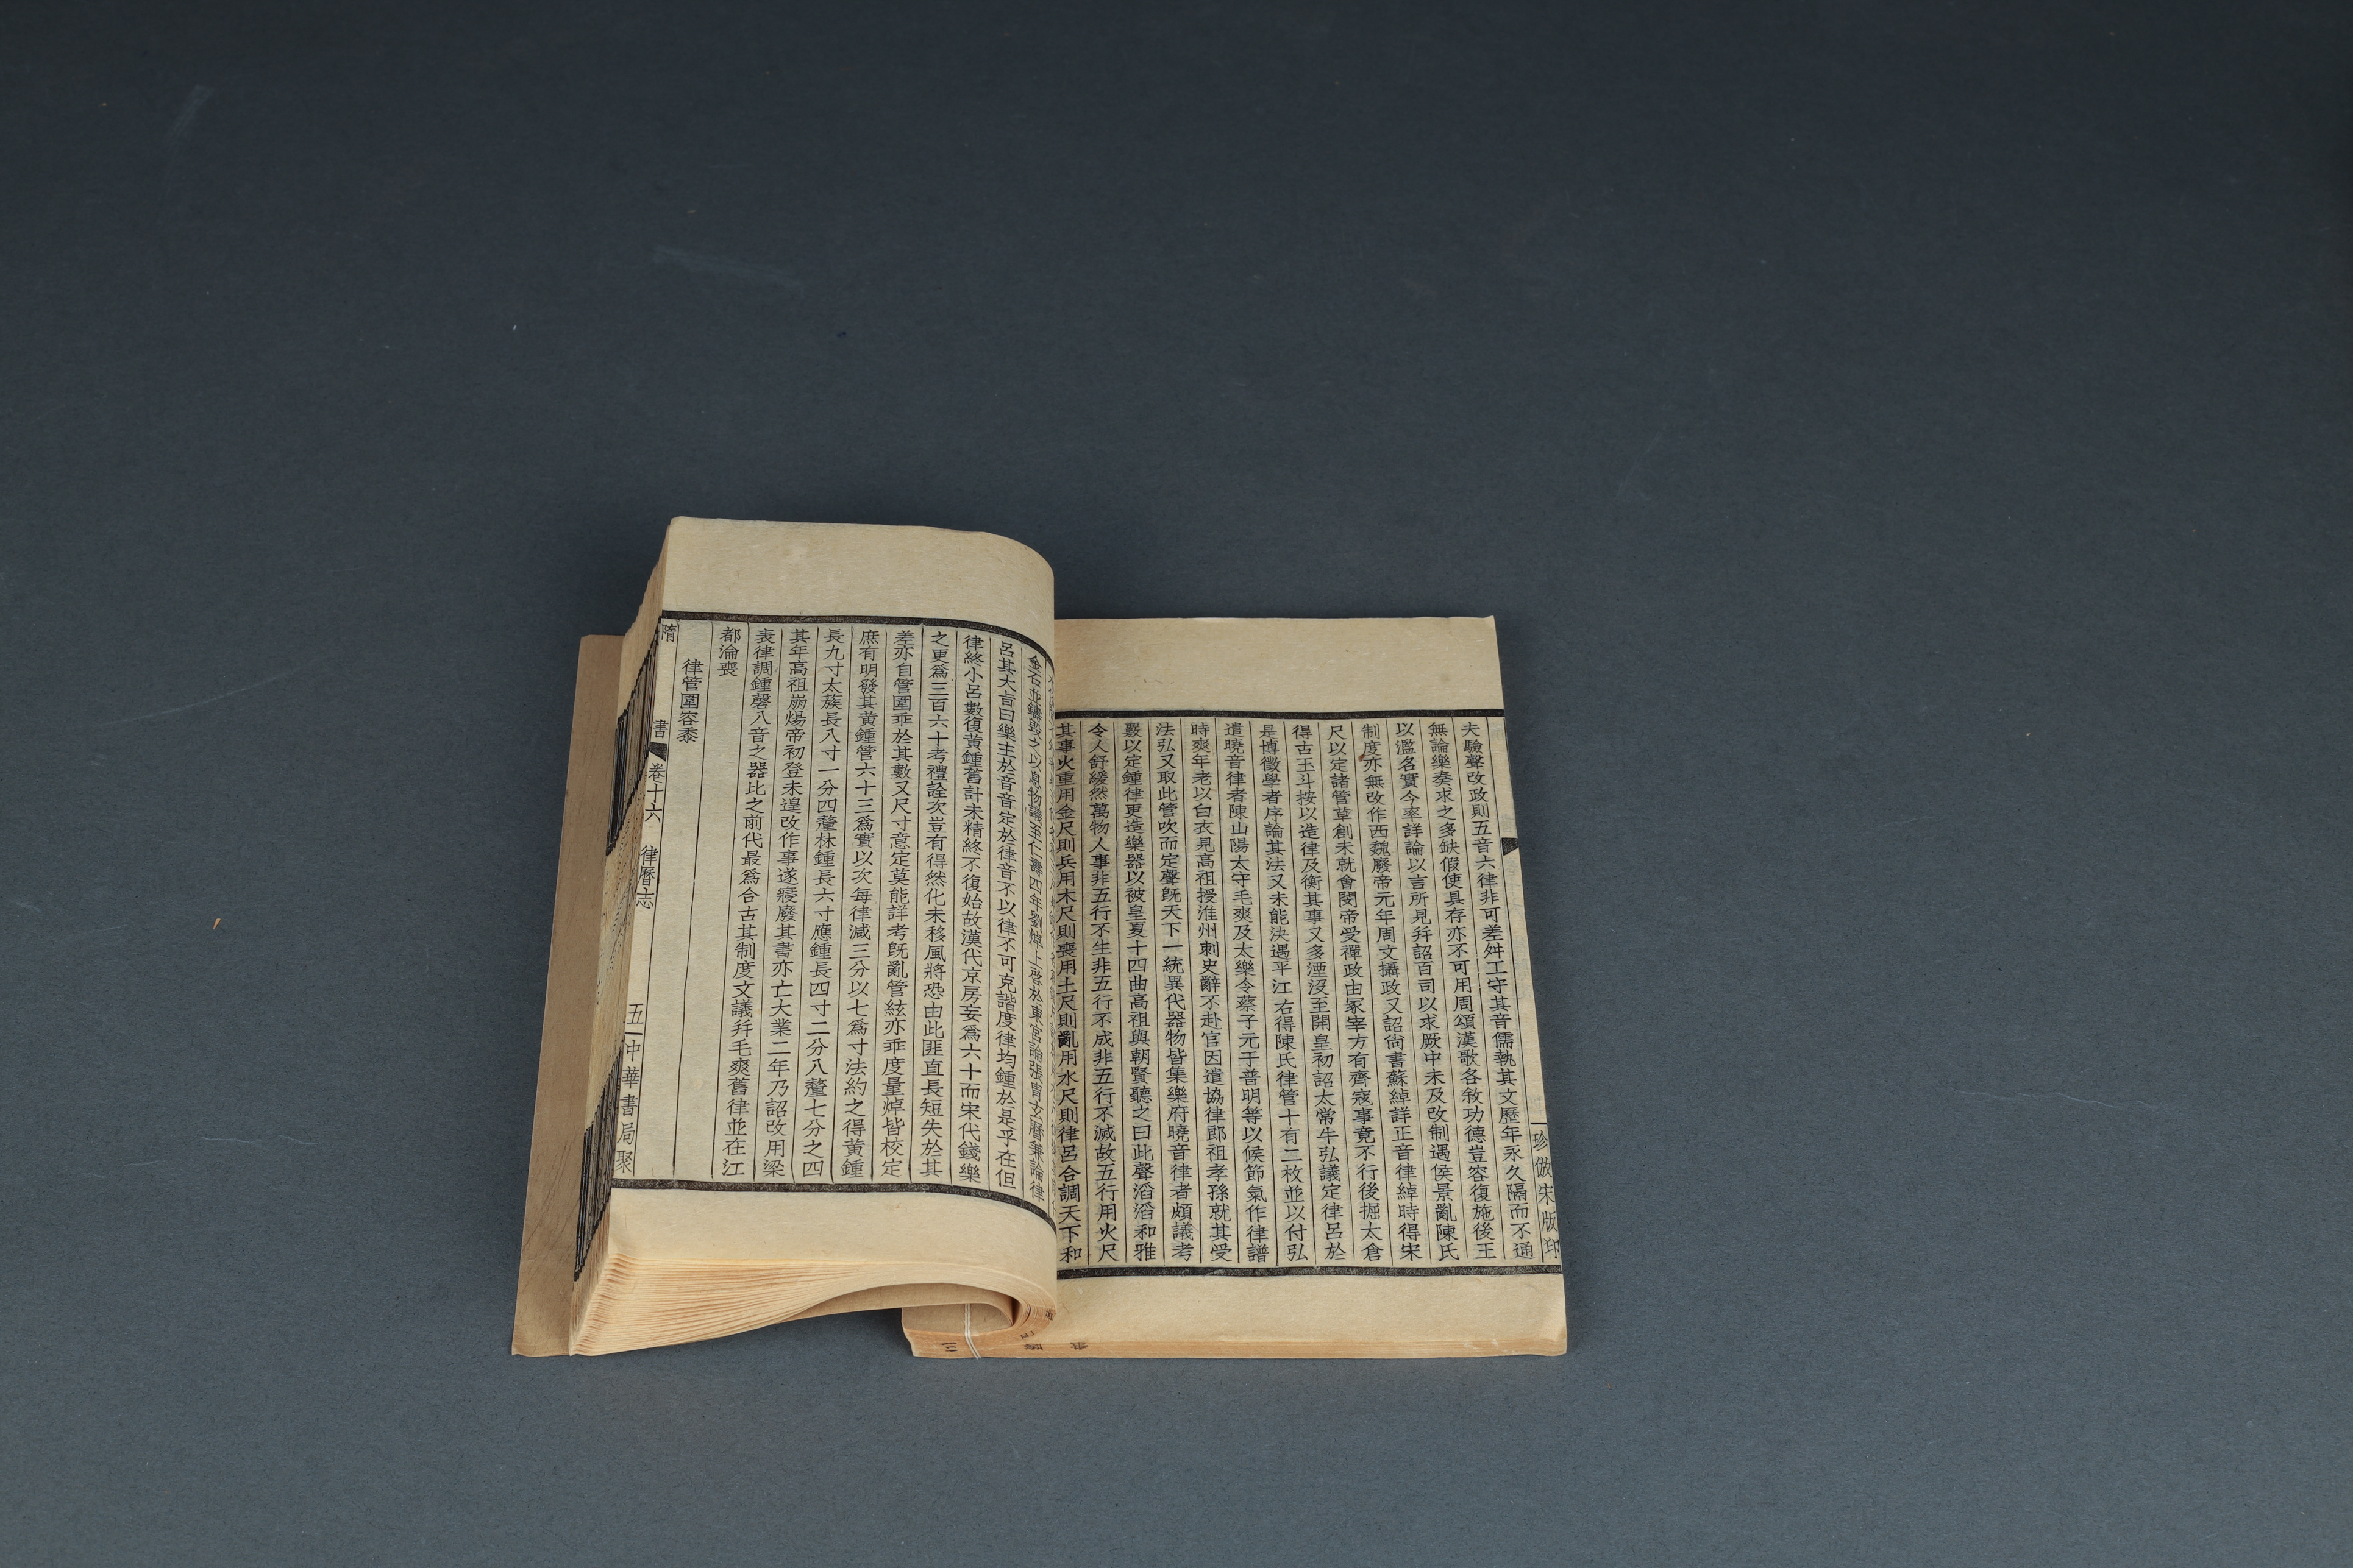 珍倣宋版印
夫驗聲改政則五音六律非可差舛工守其音儒執其文歷年永久隔而不通
無論樂奏求之多缺假使具存亦不可用周頌漢歌各敘功德豈容復施後王
以濫名實今率詳論以言所見幷詔百司以求厥中未及改制遇侯景亂陳氏
制度亦無改作西魏廢帝元年周文攝政又詔尚書蘇綽詳正音律綽時得宋
尺以定諸管草創未就會閔帝受禪政由冢宰方有齊寇事竟不行後掘太倉
得古玉斗按以造律及衡其事又多湮沒至開皇初詔太常牛弘議定律呂於
是博徵學者序論其法又未能決遇平江右得陳氏律管十有二枚並以付弘
遣曉音律者陳山陽太守毛爽及太樂令蔡子元于普明等以候節氣作律譜
時爽年老以白衣見高祖授淮州刺史辭不赴官因遣協律郎祖孝孫就其受
法弘又取此管吹而定聲旣天下一統異代器物皆集樂府曉音律者頗議考
覈以定鍾律更造樂器以被皇夏十四曲高祖與朝賢聽之曰此聲滔滔和雅
令人舒緩然萬物人事非五行不生非五行不成非五行不滅故五行用火尺
其事火重用金尺則兵用木尺則喪用土尺則亂用水尺則律呂合調天下和
金石並鑄毀之以息物議至仁壽四年劉焯上啓於東宮論張胄玄曆兼論律
呂其大旨曰樂主於音音定於律音不以律不可克諧度律均鍾於是乎在但
律終小呂數復黃鍾舊計未精終不復始故漢代京房妄爲六十而宋代錢樂
之更爲三百六十考禮詮次豈有得然化未移風將恐由此匪直長短失於其
差亦自管圍乖於其數又尺寸意定莫能詳考旣亂管絃亦乖度量焯皆校定
庶有明發其黃鍾管六十三爲實以次每律減三分以七爲寸法約之得黃鍾
長九寸太蔟長八寸一分四釐林鍾長六寸應鍾長四寸二分八釐七分之四
其年高祖崩煬帝初登未遑改作事遂寢廢其書亦亡大業二年乃詔改用梁
表律調鍾磬八音之器比之前代最爲合古其制度文議幷毛爽舊律並在江
都淪喪
律管圍容黍
隋書 卷十六 律曆志 五 中華書局聚